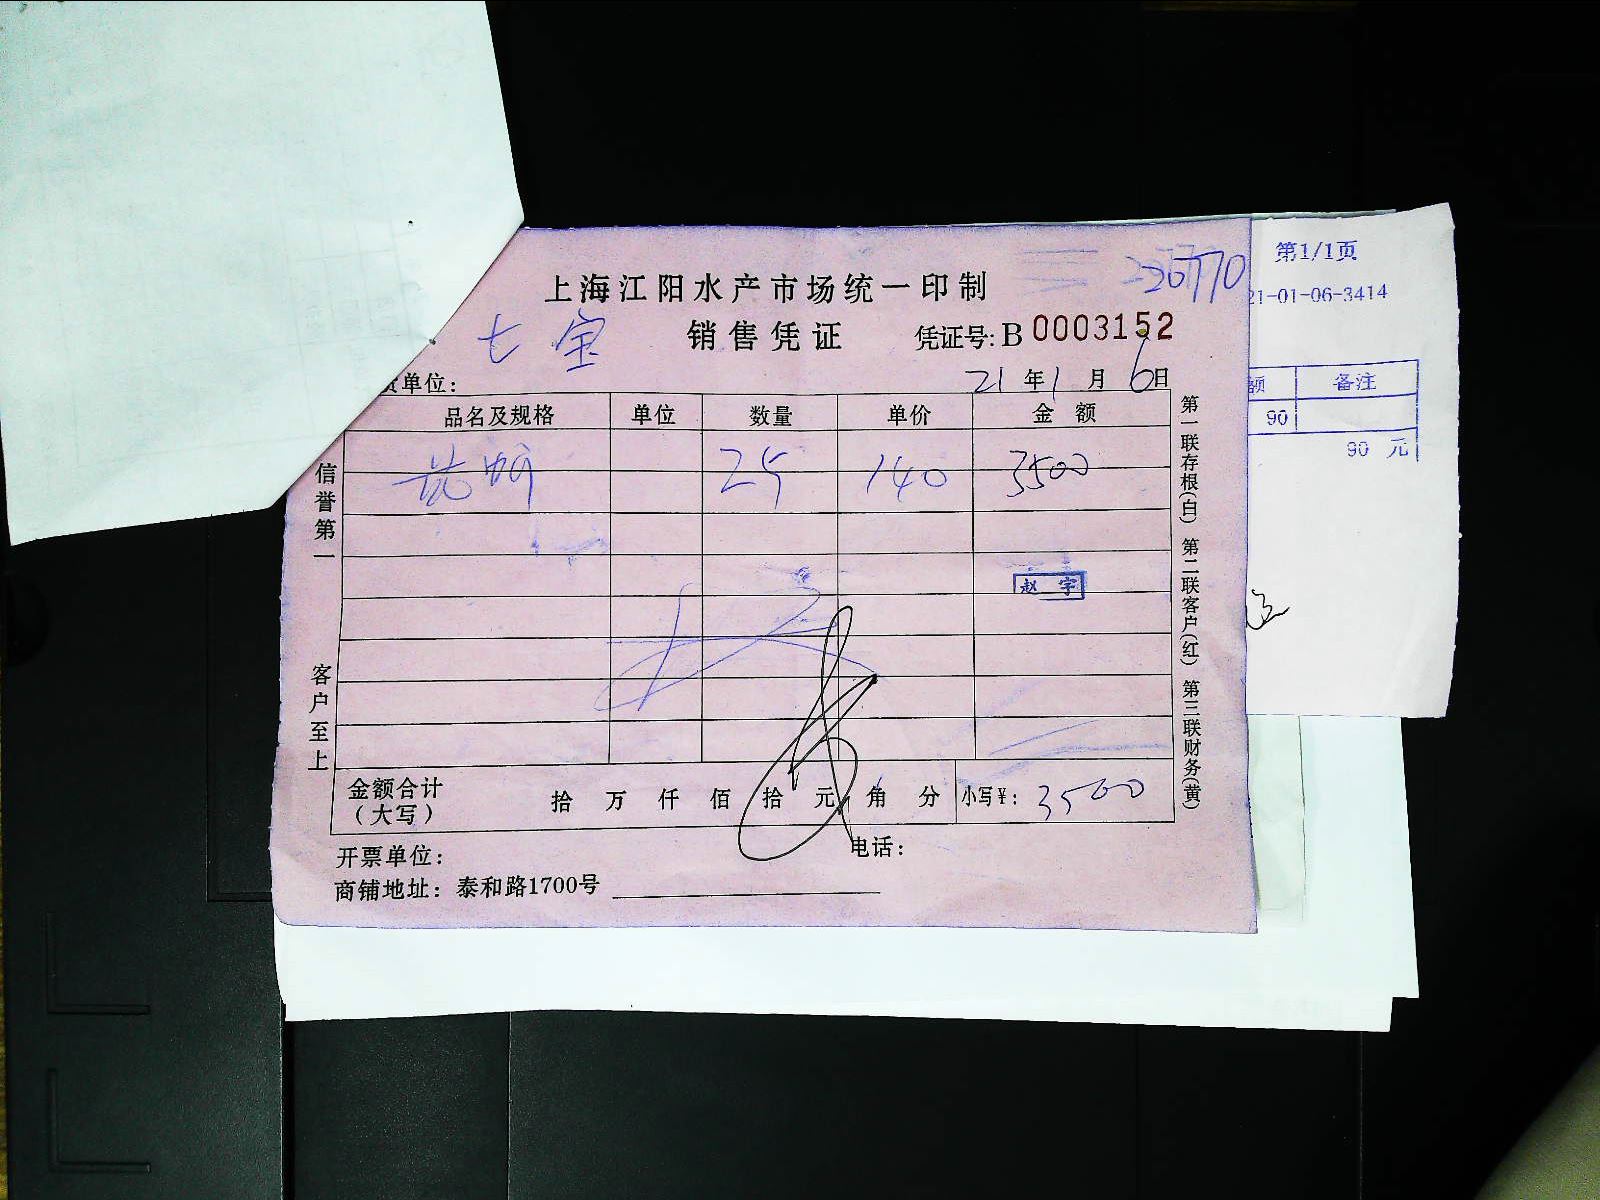 上海江阳水产市场统一印制
销售凭证
凭证号: B 0003152
七宝
单位:
21年1月6日
品名及规格 单位 数量 单价 金额
25 140 3500
赵宇
金额合计
(大写)
拾 万 仟 佰 拾 元 角 分 小写¥: 3500
开票单位:
电话:
商铺地址: 泰和路1700号
信誉第一
客户至上
第一联存根(白) 第二联客户(红) 第三联财务(黄)
第1/1页
21-01-06-3414
额 备注
90
90 元